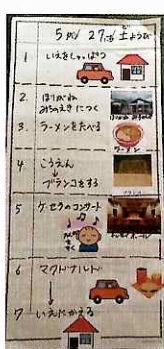 5がつ 27にち 土ようび
1 いえをしゅっぱつ
2. はりがね
みのるえきにつく
3. ラーメンをたべる
ラーメン
4 こうえん
↓
ブランコをする
5 ケ・セラのコンサート
6 マクドナルド
↓
7 いえにかえる